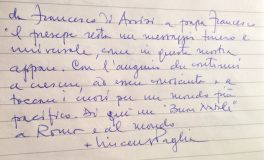 da Francesco di Assisi a papa Francesco
il presepe resta un messaggio pieno e
universale, come in questa mostra
appare. Con l'augurio che continui
a crescere, ad essere e a
toccare i cuori per un mondo più
pacifico. Di qui un "Buon Natale"
a Roma e al mondo
+ Vincenzo Paglia